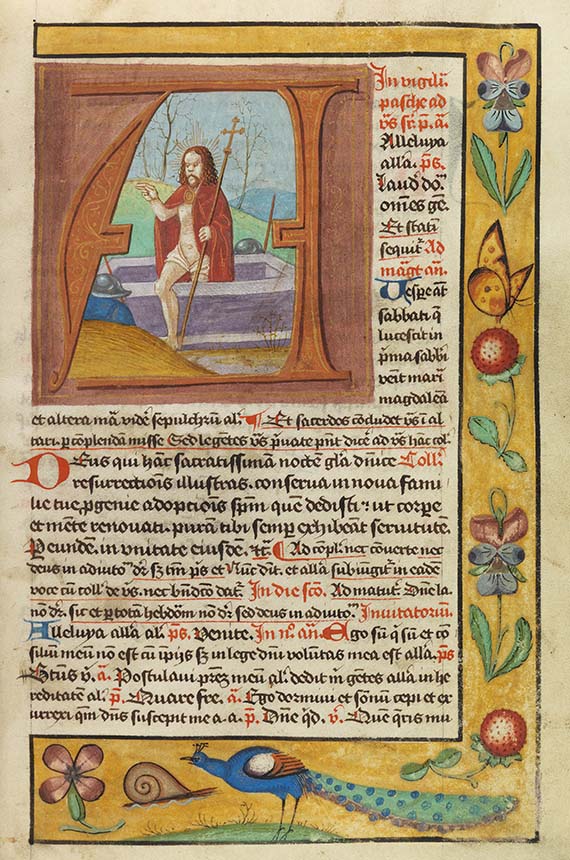 A
In vigilia
pasche ad
v̄s sr̄. p̄. a.
Alleluya
alla. p̄s.
Laud̄ do.
om̄es ge.
Et statī
sequit̄ Ad
mag̃t an.
Vesp̄e aūt
sabbati q̄
lucescit in
p̄ma sabbī
venit mari
magdalēa
et altera mā. vidē sepulchrū al.
Et sacerdos cōcludet v̄s ī al
tari. p̄ complendā misse Sed legētes v̄s p̄uate pn̄t dicē ad v̄s hāc col.
Deus qui hāc sacratissimā noctem gl̄a dn̄ice Coll.
resurrectionis illustras. conserua in noua fami
lie tue p̄genie adoptionis sp̄m quē dedisti ⁊ ut corpe
et mēte renouati. purā tibi semp̄ exhibeant seruitutē.
P̄ eundē. in vnitate eiusdē. ⁊t̄. Ad cōpl̄. nec cōuerte nec
deus in adiuto. dr̄. sꝫ tm̄ p̄s et Nūc dit. et alla subiūgit̄ in eadē
voce cū coll. de v̄s. nec bn̄dc̄o dat̄. In die sc̄o. Ad matut̄. Dn̄e la.
nō dr̄. sic et p̄ totam hebdom̄ nō dr̄ sed deus in adiuto. Inuitatoriū.
Alleluya alla al. p̄s. Venite. In n̊. an. Ego sū q̄ sū et cō
silium meū nō est cū ip̄ijs sꝫ in lege dn̄i volūtas mea est alla. p̄s
Bt̄us v. a. Postulaui p̄rez meū al. dedit m̄ gētes alla in he
reditatē al. p̄. Quare fre. a. Ego dormiui et sōnū cepi et ex
surrexi qm̄ dn̄s suscepit me a. a. p̄. Dn̄e q̄d. v. Que q̄ris mu